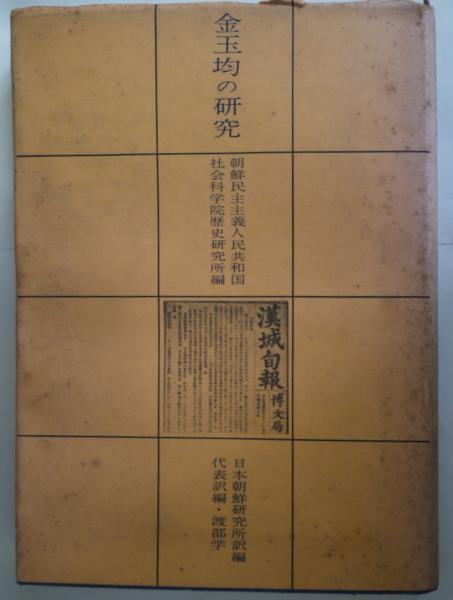 金玉均の研究
朝鮮民主主義人民共和国
社会科学院歴史研究所編
漢城旬報
博文局
日本朝鮮研究所訳編
代表訳編・渡部学